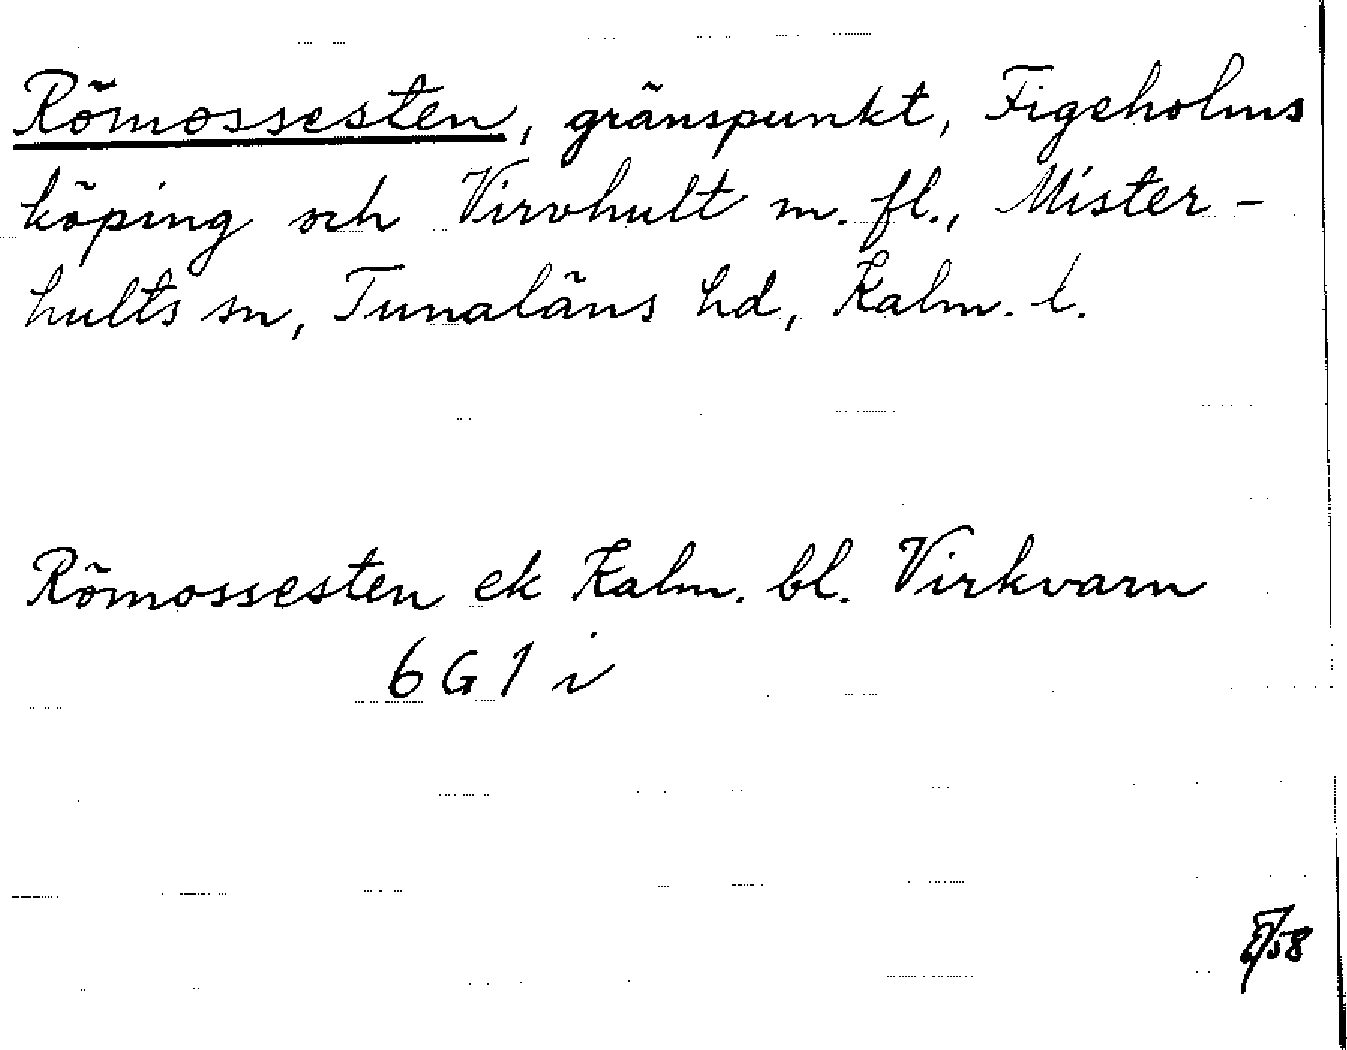 Römossesten, gränspunkt, Figeholms
köping och Virvhult m. fl., Mister-
hults sn, Tunaläns hd, Kalm. l.
Römossesten ek Kalm. bl. Virkvarn
6 G 1 i